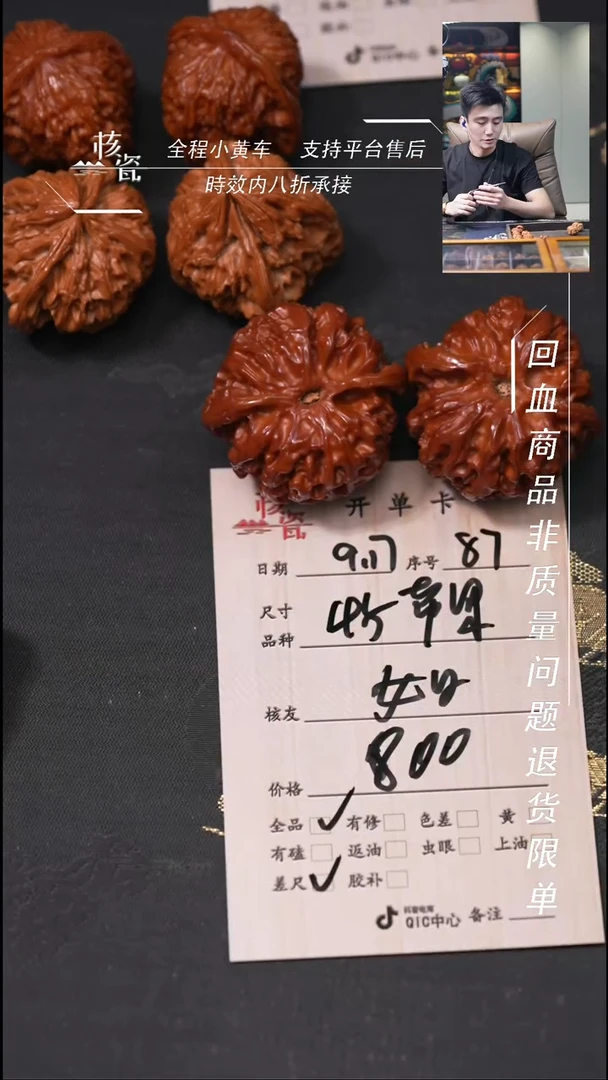 QIC中心 备
核瓷
全程小黄车 支持平台售后
時效内八折承接
回血商品非质量问题退货限单
核瓷 开单卡
日期 9.17 序号 87
尺寸 45 苹果
品种
核友
价格 800
全品 ✓ 有修 色差 黄
有磕 返油 虫眼 上油
差尺 ✓ 胶补
抖音电商
QIC中心 备注